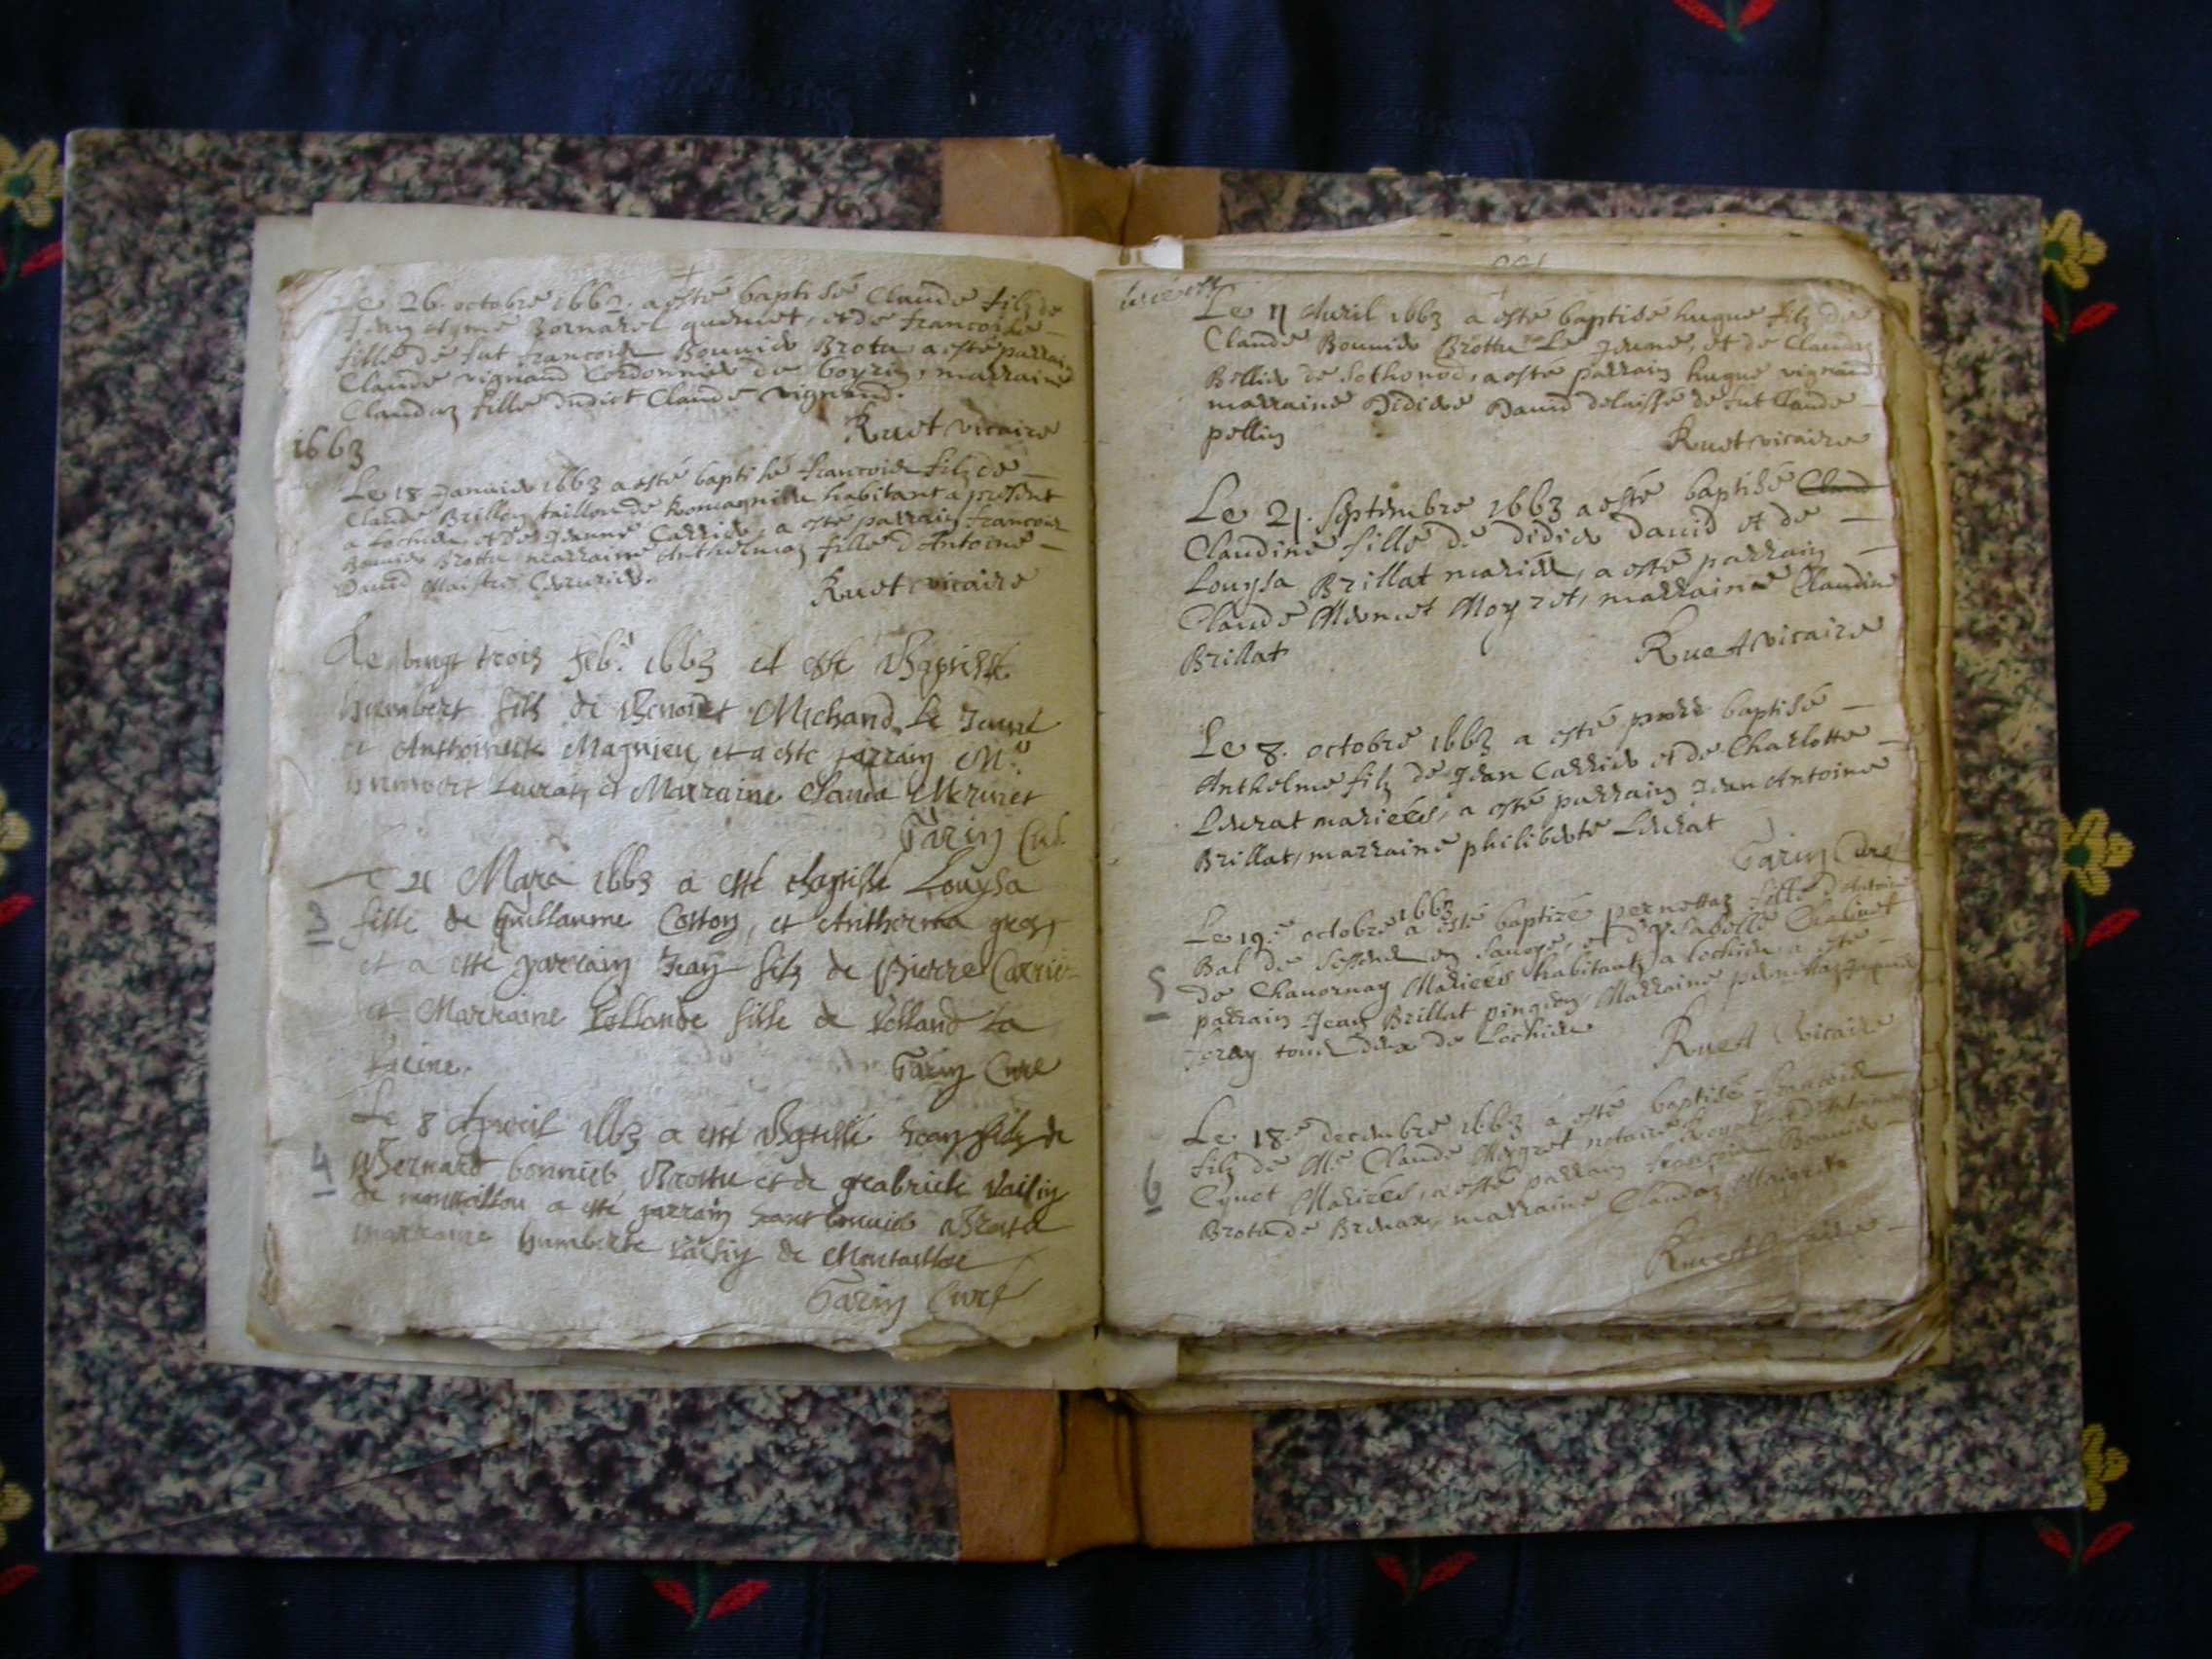 Le 26. octobre 1662. a esté baptisé Claude filz de
quernet, et de francoise
fille de fut francois Bouvier Brottu a esté parrain
Claude vignand Cordonnier de marraine
Claudaz fille dudict Claude vignand.
Ruet vicaire
1663
Le 18 Janvier 1663 a esté baptisé francois filz de
Claude Brillon habitant a present
a Lochieu, et de Jeanne Carrier, a esté parrain francois
Bouvier Brottu marraine Anthelmaz fille d'Antoine
David Maistre
Ruet vicaire
Le vingt trois feb. 1663 et esté Baptisé
humbert filz de Benoiet Michaud Le Jeune
et Anthoinette Magnieu, et a esté parrain M.
humbert Luirat, et Marraine Clauda Mermet
Garin Curé
Le 21 Mars 1663 a esté Baptisé Louysa
3 fille de Guillaume Cotton, et Anthelma gros
et a esté parrain Jean filz de Pierre Carrier
et Marraine Rollande fille de Rolland La
Racine.
Garin Curé
Le 8 Apvril 1663 a esté Baptisé Jean filz de
4 Bernard bonnier Brottu et de gabriele Vaisin
de montaillou a esté parrain bouvier Brottu
marraine humberte Vaisin de
Garin Curé
Le 11 Avril 1663 a esté baptisé hugue filz de
Claude Bouvier Brottu Le Jeune, et de Claudaz
Billier de Sothonod, a esté parrain hugue vignand
marraine Didiere David delaissé de fut Claude
pellin
Ruet vicaire
Le 21. septembre 1663 a esté baptisé Claud
Claudine fille de didier David et de
Louysa Brillat mariés, a esté parrain
Claude Mermet Moyret, marraine Claudine
Brillat
Ruet vicaire
Le 8. octobre 1663 a esté baptisé
Anthelme filz de Jean Carrier et de Charlotte
Luirat mariées, a esté parrain Jean Antoine
Brillat, marraine philiberte Luirat
Garin Curé
1663
Le 19.e octobre a esté baptizé pernettaz fille d'Antoine
Bal de en savoye, et d'ysabelle Chalinet
5 de Chavornay Mariées habitants a Lochieu a esté
parrain Jean Brillat pingeon, Marraine pernettaz
tous deux de Lochieu
Ruet vicaire
Le 18.e decembre 1663 a esté baptisé francois
filz de M.e Claude Maigret notaire et d'Antoinette
6 Cynet Mariées, a esté parrain francois Bouvier
Brottu de Brenaz, marraine Claudaz Maigrette
Ruet vicaire